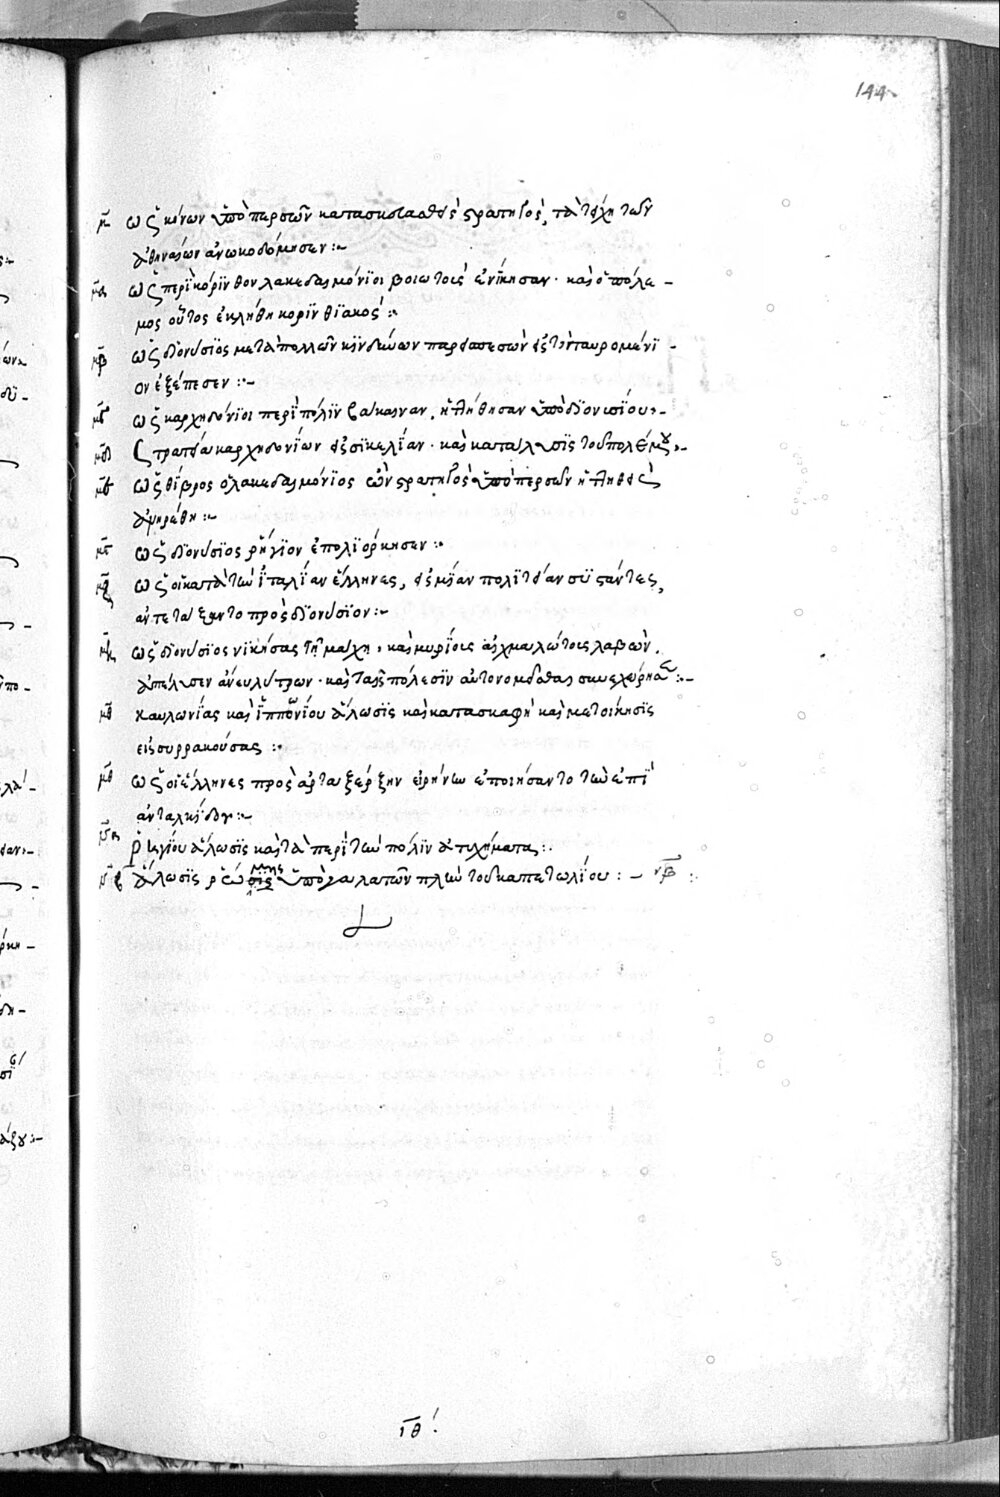 144
μ̅ ὡς κόνων ὑπὸ περσῶν κατασκευασθεὶς στρατηγὸς, τὰ τείχη τῶν
ἀθηναίων ἀνωκοδόμησεν :~
μ̅α ὡς περὶ κόρϊνθον λακεδαιμόνϊοι βοιωτοὺς ἐνίκησαν · καὶ ὁ πόλε –
μος οὗτος ἐκλήθη κορϊνθϊακός :~
μ̅β ὡς δϊονύσϊος μετὰ πολλῶν κϊνδύνων παρεισπεσὼν εἰς τὸ ταυρομένϊ –
ον ἐξέπεσεν :~
μ̅γ ὡς καρχηδόνϊοι περὶ πόλϊν βάκαιναν, ἡττήθησαν ὑπὸ δϊονυσΐου :~
μ̅δ στρατεία καρχηδονΐων εἰς σϊκελΐαν · καὶ κατάλυσϊς τοῦ πολέμου :~
μ̅ε ὡς θΐβρος ὁ λακεδαιμόνϊος ὢν στρατηγὸς ὑπὸ περσῶν ἡττηθεὶς
ἀνῃρέθη :~
μ̅ϛ ὡς δϊονύσϊος ῥήγϊον ἐπολϊόρκησεν :~
μ̅ζ ὡς οἱ κατὰ τὴν ἰταλΐαν ἕλληνες, εἰς μΐαν πολϊτείαν συστάντες,
ἀντετάξαντο πρὸς δϊονύσϊον :~
μ̅η ὡς δϊονύσϊος νϊκήσας τῇ μάχῃ, καὶ μυρΐους αἰχμαλώτους λαβὼν,
ἀπέλυσεν ἄνευ λύτρων · καὶ ταῖς πόλεσϊν αὐτονομεῖσθαι συνεχώρησεν :~
μ̅θ καυλωνΐας καὶ ἱππωνΐου ἅλωσϊς καὶ κατασκαφὴ καὶ μετοίκησϊς
εἰς συρρακούσας :~
ν̅ ὡς οἱ ἕλληνες πρὸς ἀρταξέρξην εἰρήνην ἐποιήσαντο τὴν ἐπὶ
ἀνταλκίδου :~
ν̅α ῥηγΐου ἅλωσϊς καὶ τὰ περὶ τὴν πόλϊν ἀτυχήματα :~
ν̅β ἅλωσϊς ῥώμης ὑπὸ γαλατῶν πλὴν τοῦ καπετωλΐου : – ν̅β :
ι̅θ